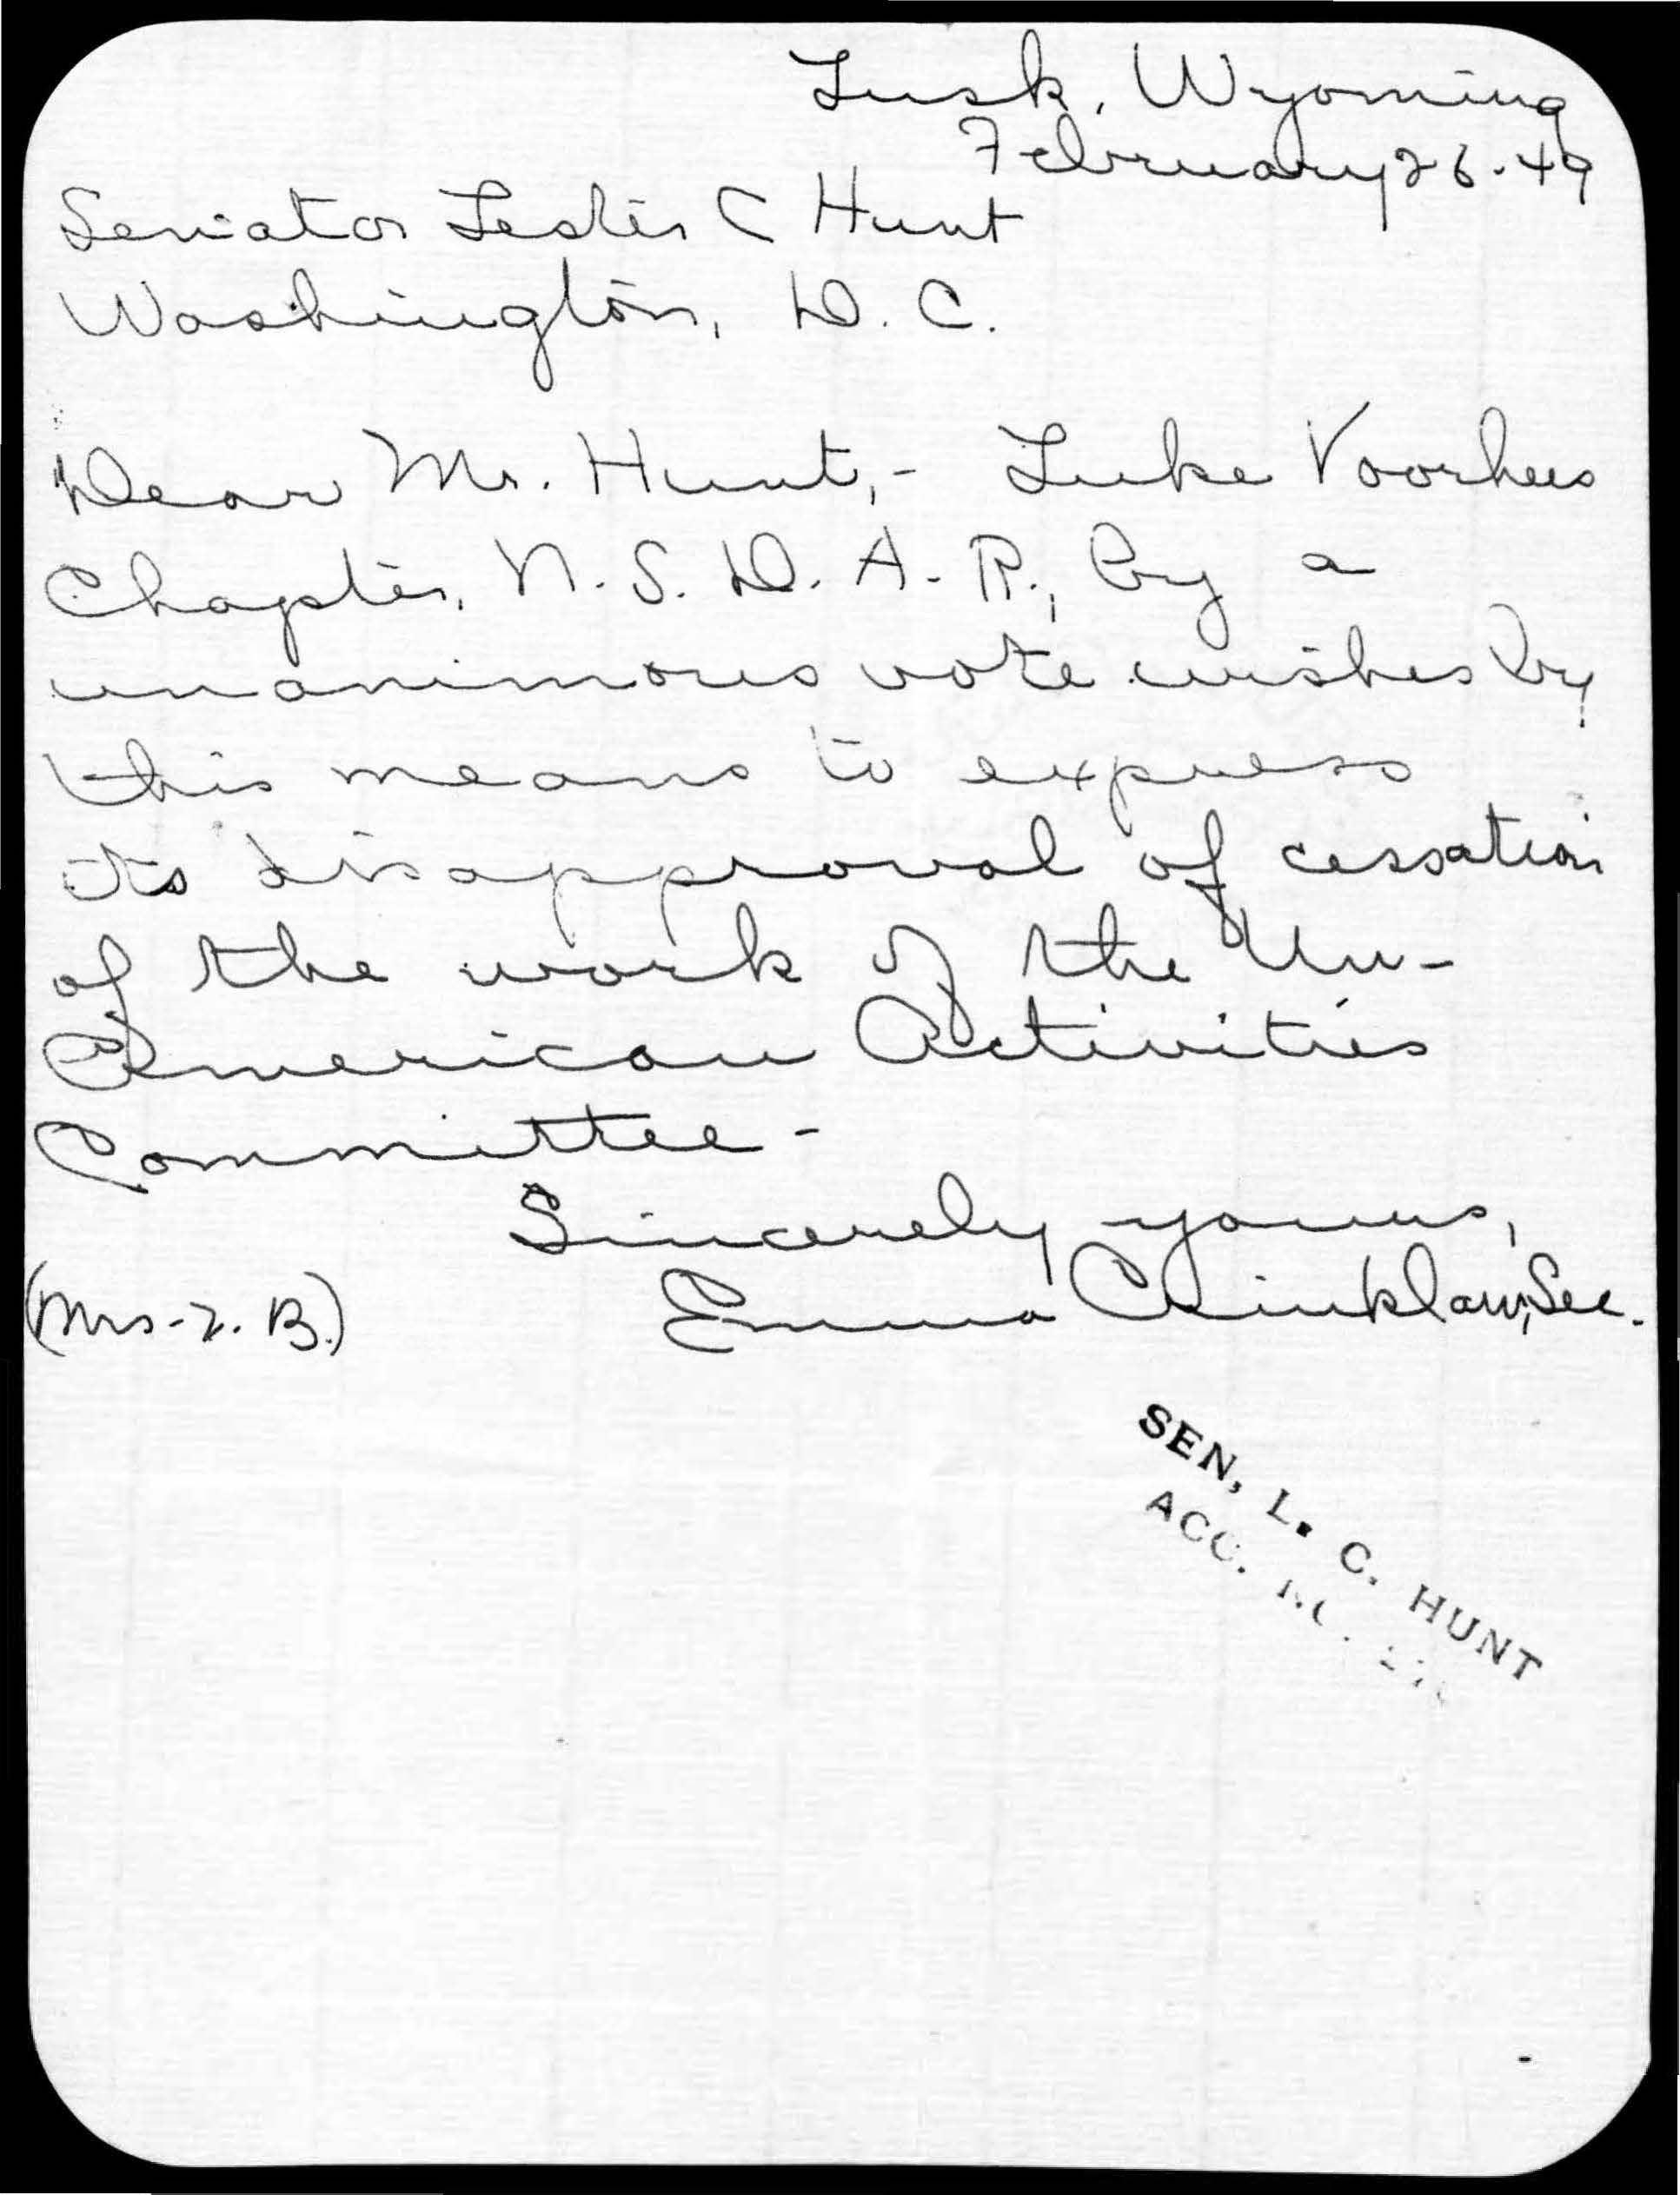 Lusk, Wyoming
February 26-49
Senator Lester C Hunt
Washington, D. C.
Dear Mr. Hunt,- Luke Voorhees
Chapter, N. S. D. A. R., by a
unanimous vote wishes by
this means to express
its disapproval of cessation
of the work of the Un-
American Activities
Committee -
Sincerely yours,
(Mrs. B.) Emma Crinklaw, Sec.
SEN, L. C. HUNT
ACC.